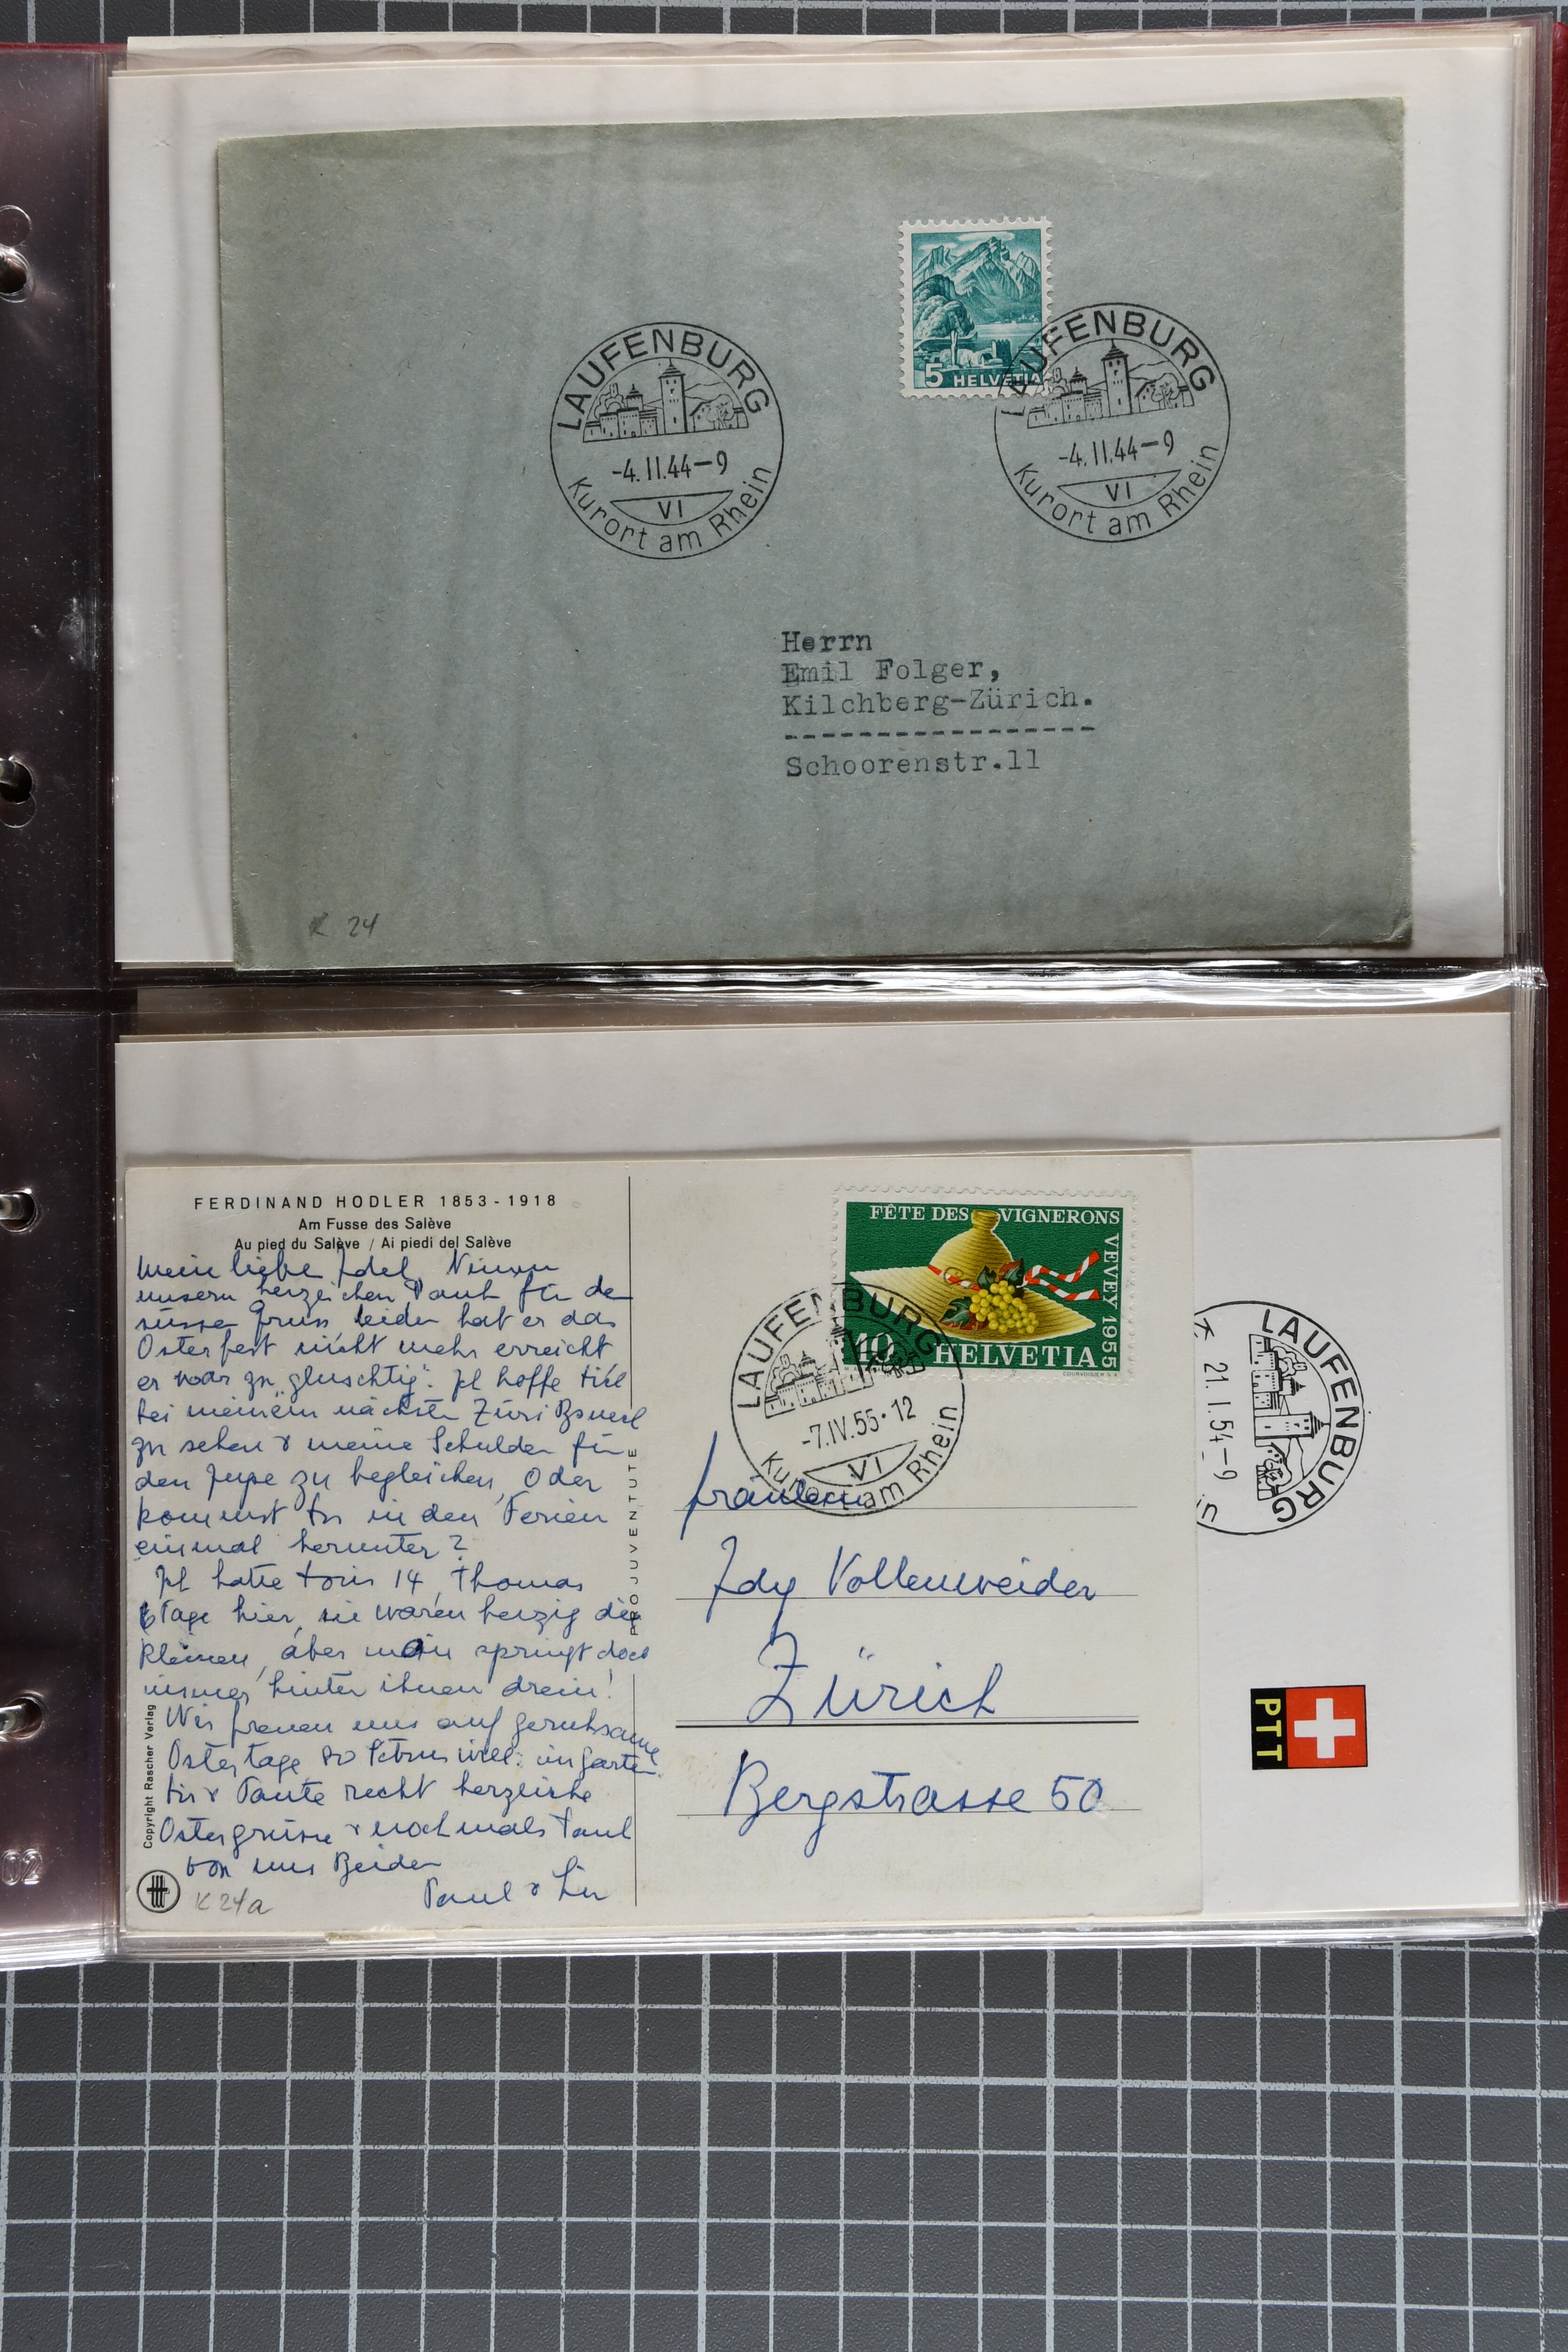 5 HELVETIA
LAUFENBURG
-4.II.44-9
VI
Kurort am Rhein
LAUFENBURG
-4.II.44-9
VI
Kurort am Rhein
Herrn
Emil Folger,
Kilchberg-Zürich.
-----------------
Schoorenstr.11
K 24
FERDINAND HODLER 1853-1918
Am Fusse des Salève
Au pied du Salève / Ai piedi del Salève
Meine liebe Idy,
unsern herzlichen Dank für de
süssen Gruss leider hat er das
Osterfest nicht mehr erreicht
er war zu „gluschtig". Ich hoffe
bei meinem nächsten Züri Bsuech
zu sehen & meine Schulden für
den Jupe zu begleichen, Oder
kommst Du in den Ferien
einmal herunter?
Ich hatte Doris 14, Thomas
6 Tage hier, sie waren herzig die
Kleinen, aber man springt doch
immer hinter ihnen drein!
Wir freuen uns auf geruhsame
Ostertage im Garten.
Dir & Tante recht herzliche
Ostergrüsse & nochmals Dank
von uns Beiden
Paul &
K 24a
Copyright Rascher Verlag
PRO JUVENTUTE
FÊTE DES VIGNERONS
VEVEY 1955
10 HELVETIA
COURVOISIER S.A.
LAUFENBURG
-7.IV.55·12
VI
Kurort am Rhein
Fräulein
Idy Vollenweider
Zürich
Bergstrasse 50
LAUFENBURG
21.I.54-9
PTT
02